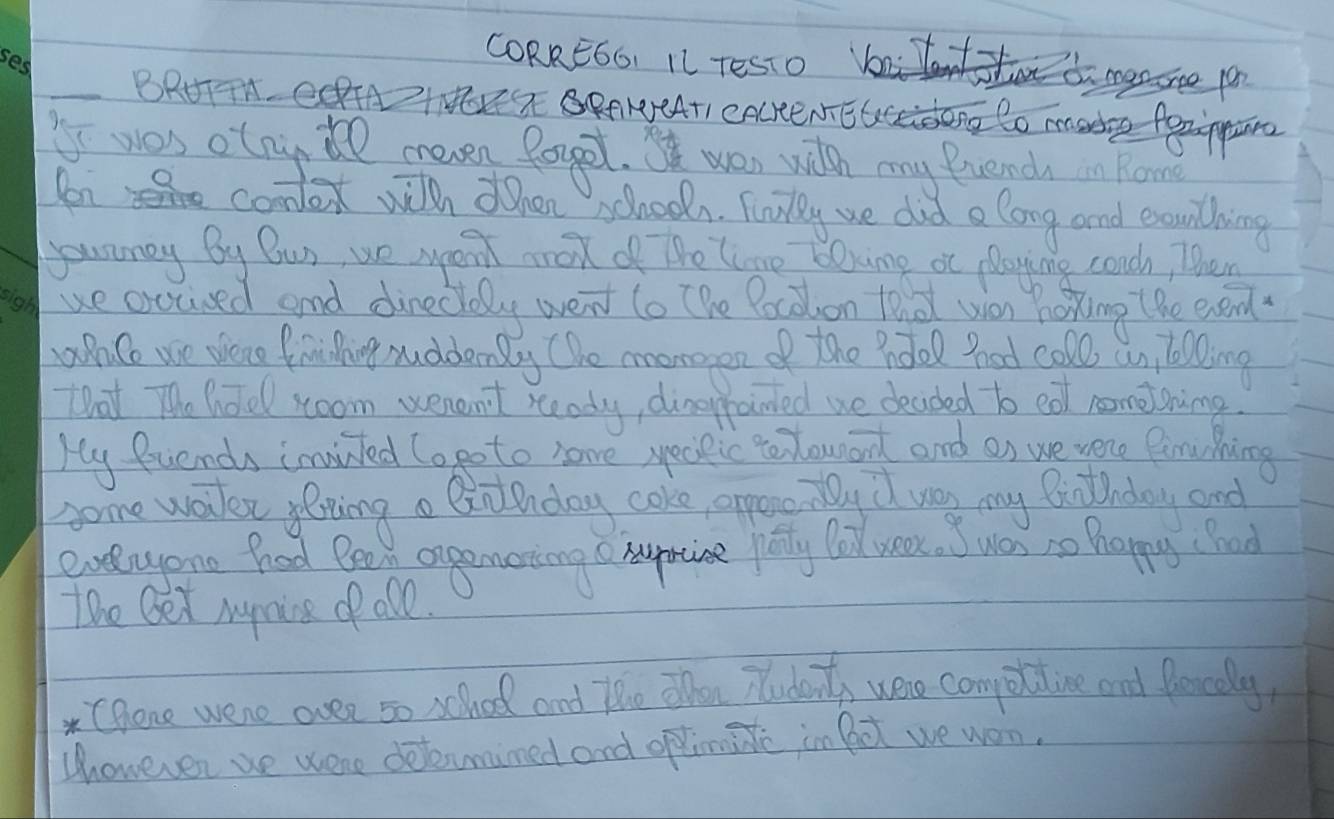 CORREGGI IL TESTO
BRUTTA COPIA INGLESE GRAMMATICALMENTE
It was a trip I'll never forget. It was with my friends in Rome
for a contest with other schools. Firstly we did a long and exausthing
journey by bus, we spent most of the time talking or playing cards, then
we arrived and directely went to the location that was hosting the event *
while we were finishing suddenly the manager of the hotel had call us, telling
that the hotel room weren't ready, disappointed we decided to eat something.
My friends invited to go to some specific restaurant and as we were finishing
some waiter bring a birthday cake, apparently it was my birthday and
everyone had been organazing a surprise party last week. I was so happy i had
the best suprise of all.
* There were over 50 school and the other students were competitive and fiercely,
however we were determined and optimistic, in fact we won.
ses
sigh